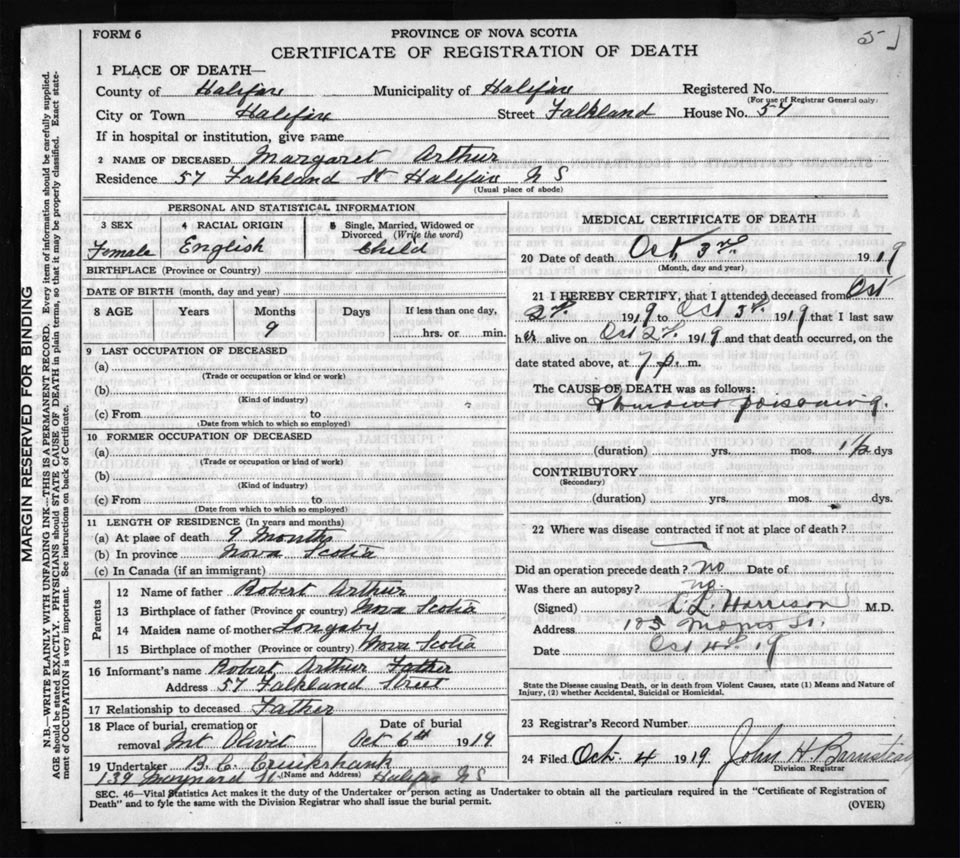 FORM 6
PROVINCE OF NOVA SCOTIA
CERTIFICATE OF REGISTRATION OF DEATH
1 PLACE OF DEATH—
County of Halifax Municipality of Halifax Registered No.
(For use of Registrar General only)
City or Town Halifax Street Falkland House No. 57
If in hospital or institution, give name
2 NAME OF DECEASED Margaret Arthur
Residence 57 Falkland St Halifax N S
(Usual place of abode)
PERSONAL AND STATISTICAL INFORMATION
3 SEX 4 RACIAL ORIGIN 5 Single, Married, Widowed or Divorced (Write the word)
Female English Child
BIRTHPLACE (Province or Country)
DATE OF BIRTH (month, day and year)
8 AGE Years Months Days If less than one day,
9 hrs. or min.
9 LAST OCCUPATION OF DECEASED
(a)
(Trade or occupation or kind or work)
(b)
(Kind of industry)
(c) From to
(Date from which to which so employed)
10 FORMER OCCUPATION OF DECEASED
(a)
(Trade or occupation or kind of work)
(b)
(Kind of industry)
(c) From to
(Date from which to which so employed)
11 LENGTH OF RESIDENCE (In years and months)
(a) At place of death 9 Months
(b) In province Nova Scotia
(c) In Canada (if an immigrant)
Parents
12 Name of father Robert Arthur
13 Birthplace of father (Province or country) Nova Scotia
14 Maiden name of mother
15 Birthplace of mother (Province or country) Nova Scotia
16 Informant's name Robert Arthur Father
Address 57 Falkland Street
17 Relationship to deceased Father
18 Place of burial, cremation or removal Mt Olivit Date of burial Oct 6th 1919
19 Undertaker B. C. Cruikshank
139 Maynard St. (Name and Address) Halifax N S
MEDICAL CERTIFICATE OF DEATH
20 Date of death Oct, 3rd 1919
(Month, day and year)
21 I HEREBY CERTIFY, that I attended deceased from Oct
2d. 1919 to Oct 3d. 1919 that I last saw
her alive on Oct 2d. 1919 and that death occurred, on the
date stated above, at 7 p. m.
The CAUSE OF DEATH was as follows:
poisoning.
(duration) yrs. mos. 1½ dys
CONTRIBUTORY
(Secondary)
(duration) yrs. mos. dys.
22 Where was disease contracted if not at place of death?
Did an operation precede death? no Date of
Was there an autopsy? no.
(Signed) Harrison M.D.
Address 105 Morris St.
Date Oct 4th 19
State the Disease causing Death, or in death from Violent Causes, state (1) Means and Nature of
Injury, (2) whether Accidental, Suicidal or Homicidal.
23 Registrar's Record Number
24 Filed Oct. 4 1919 John H Barnstead
Division Registrar
SEC. 46—Vital Statistics Act makes it the duty of the Undertaker or person acting as Undertaker to obtain all the particulars required in the "Certificate of Registration of
Death" and to fyle the same with the Division Registrar who shall issue the burial permit.
(OVER)
MARGIN RESERVED FOR BINDING
N.B.—WRITE PLAINLY WITH UNFADING INK—THIS IS A PERMANENT RECORD. Every item of information should be carefully supplied.
AGE should be stated EXACTLY. PHYSICIANS should STATE CAUSE OF DEATH in plain terms, so that it may be properly classified. Exact state-
ment of OCCUPATION is very important. See instructions on back of Certificate.